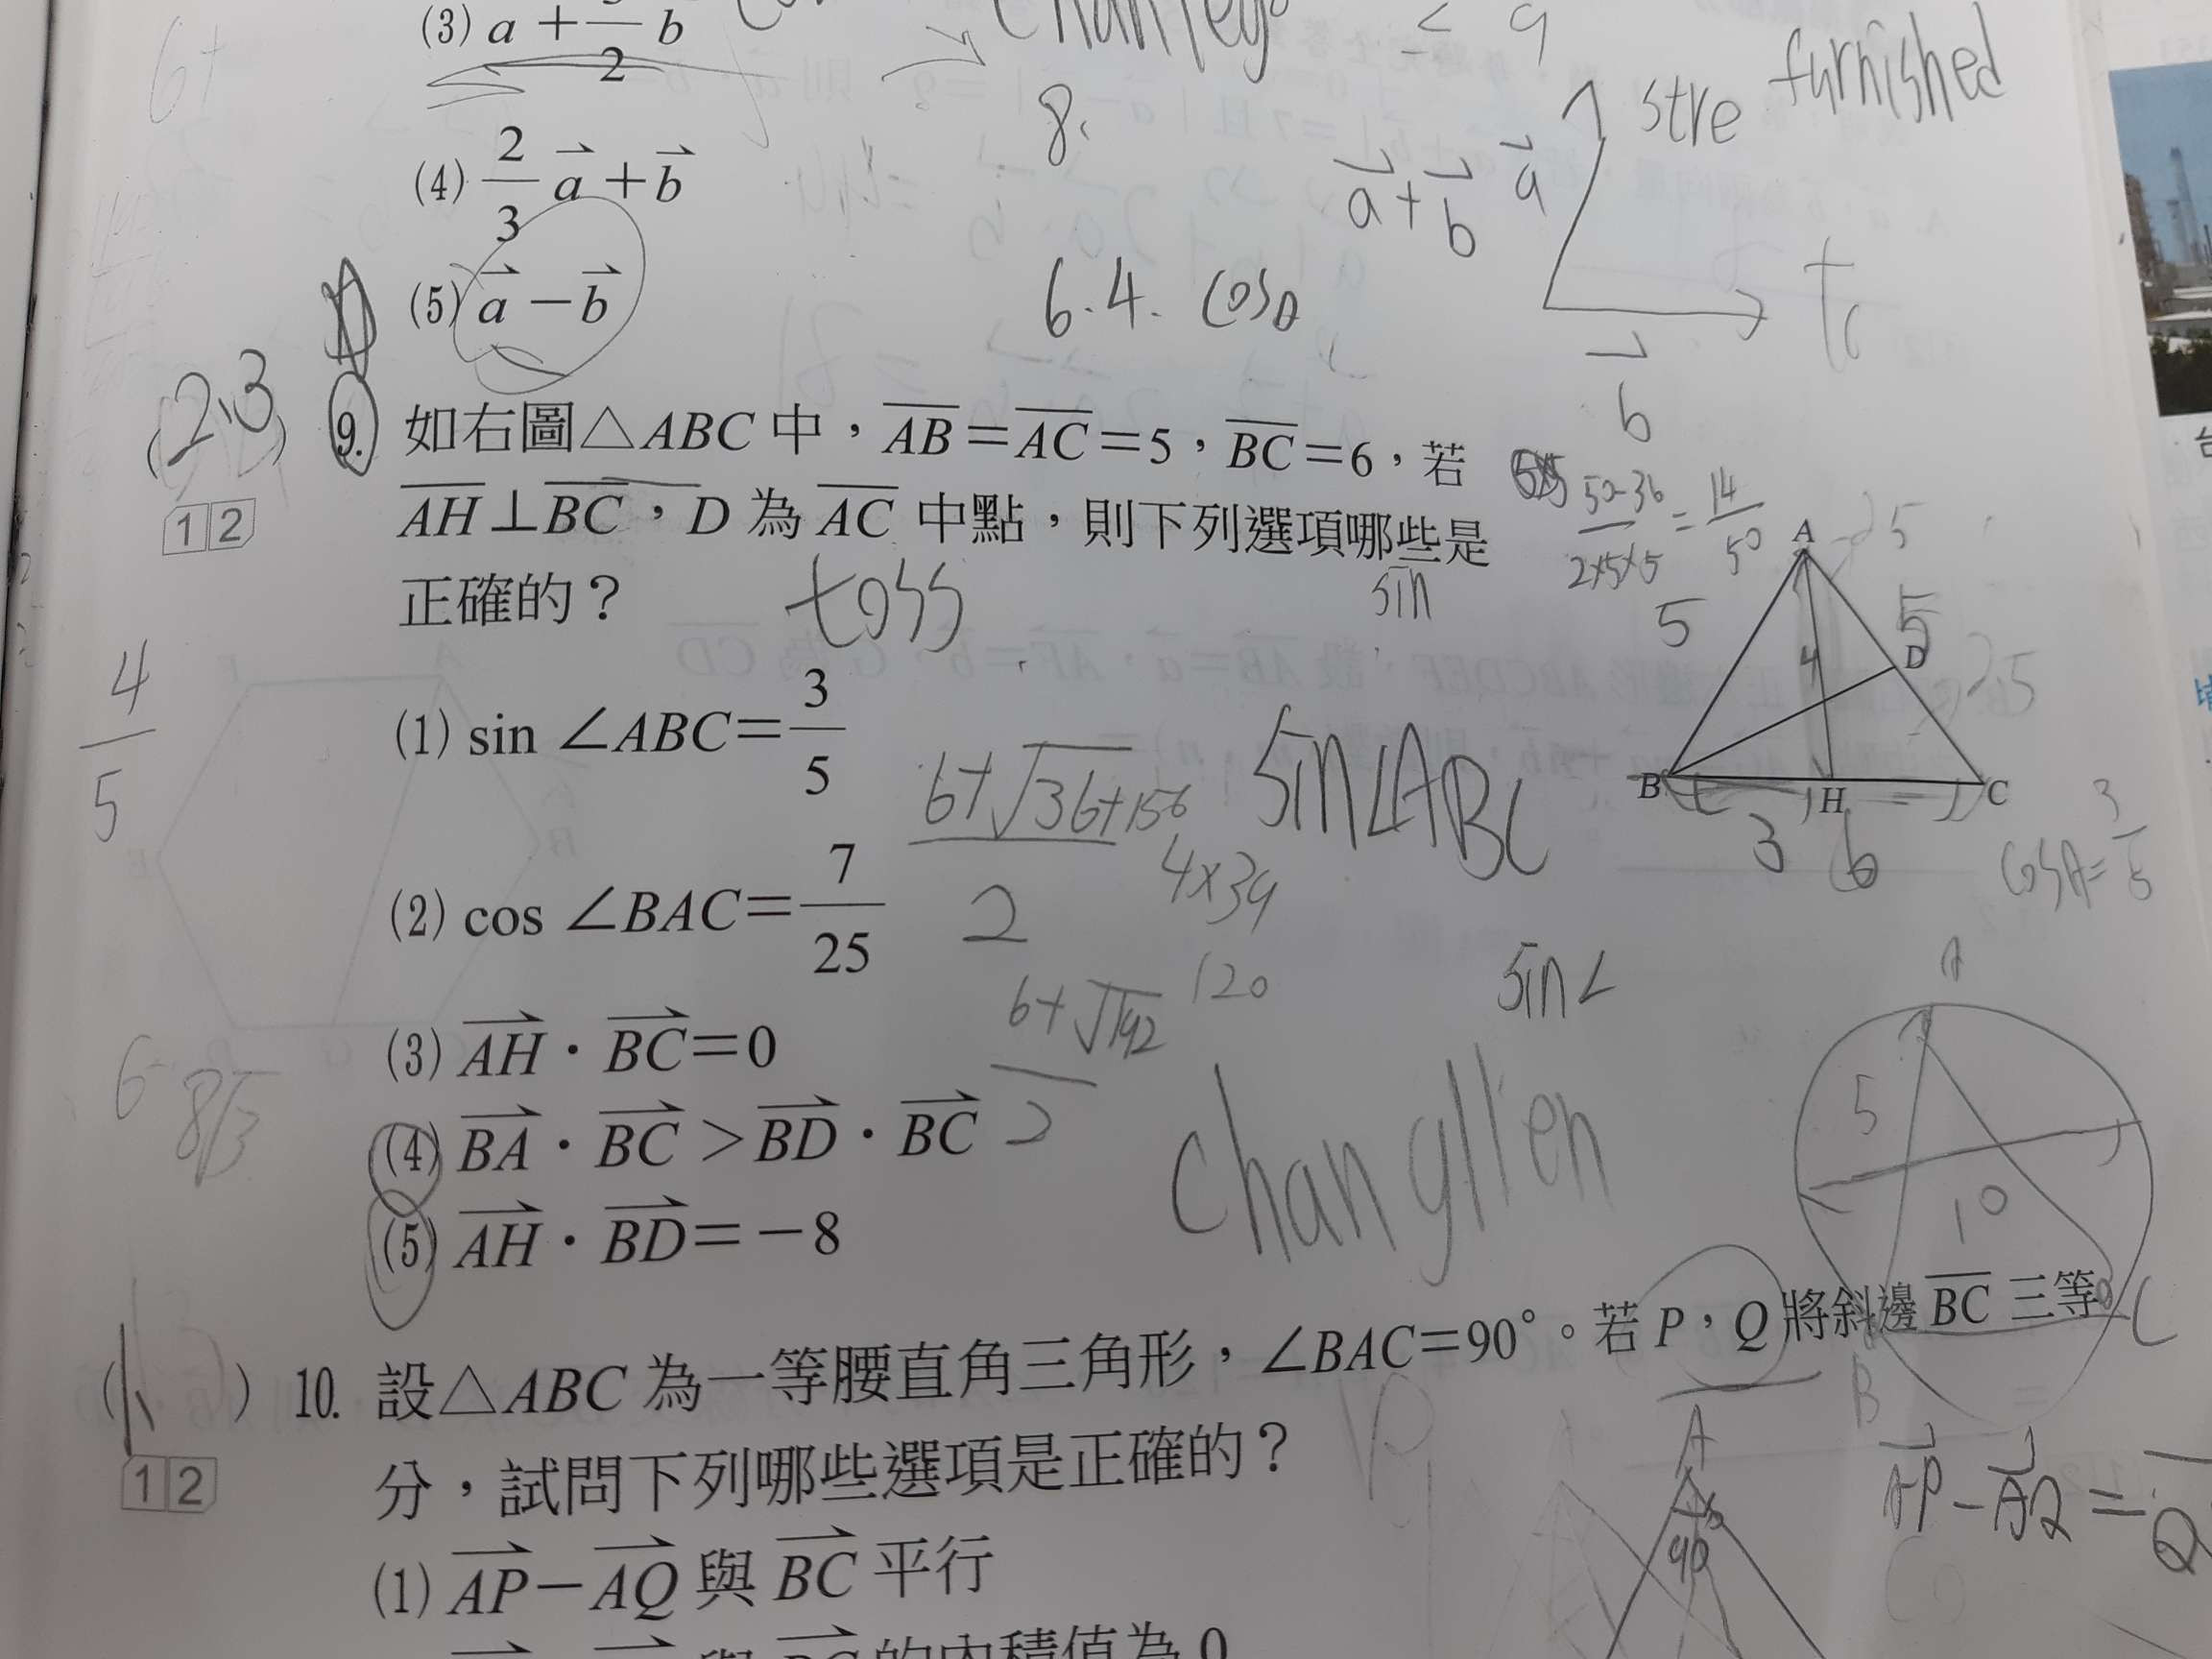 (3) a + b
2
(4) 2/3 a + b
8.
a + b
a
stre
furnished
(5) a − b
6.4. cosθ
b
2.3
9. 如右圖△ABC 中，AB＝AC＝5，BC＝6，若
AH⊥BC，D 為 AC 中點，則下列選項哪些是
正確的？
1 2
50-36/2×5×5 = 14/50
toss
sin
A
5
5
4
D
2.5
B
H
C
3
6
cosA = 3/5
4/5
(1) sin ∠ABC＝3/5
6+√36+156
2
4×39
sin∠ABC
(2) cos ∠BAC＝7/25
6+√192
2
120
sin∠
(3) AH · BC＝0
(4) BA · BC＞BD · BC
(5) AH · BD＝−8
A
5
10
B
C
10. 設△ABC 為一等腰直角三角形，∠BAC＝90°。若 P，Q 將斜邊 BC 三等
分，試問下列哪些選項是正確的？
1 2
A
90
AP − AQ =
(1) AP−AQ 與 BC 平行
與 BC 的內積值為 0